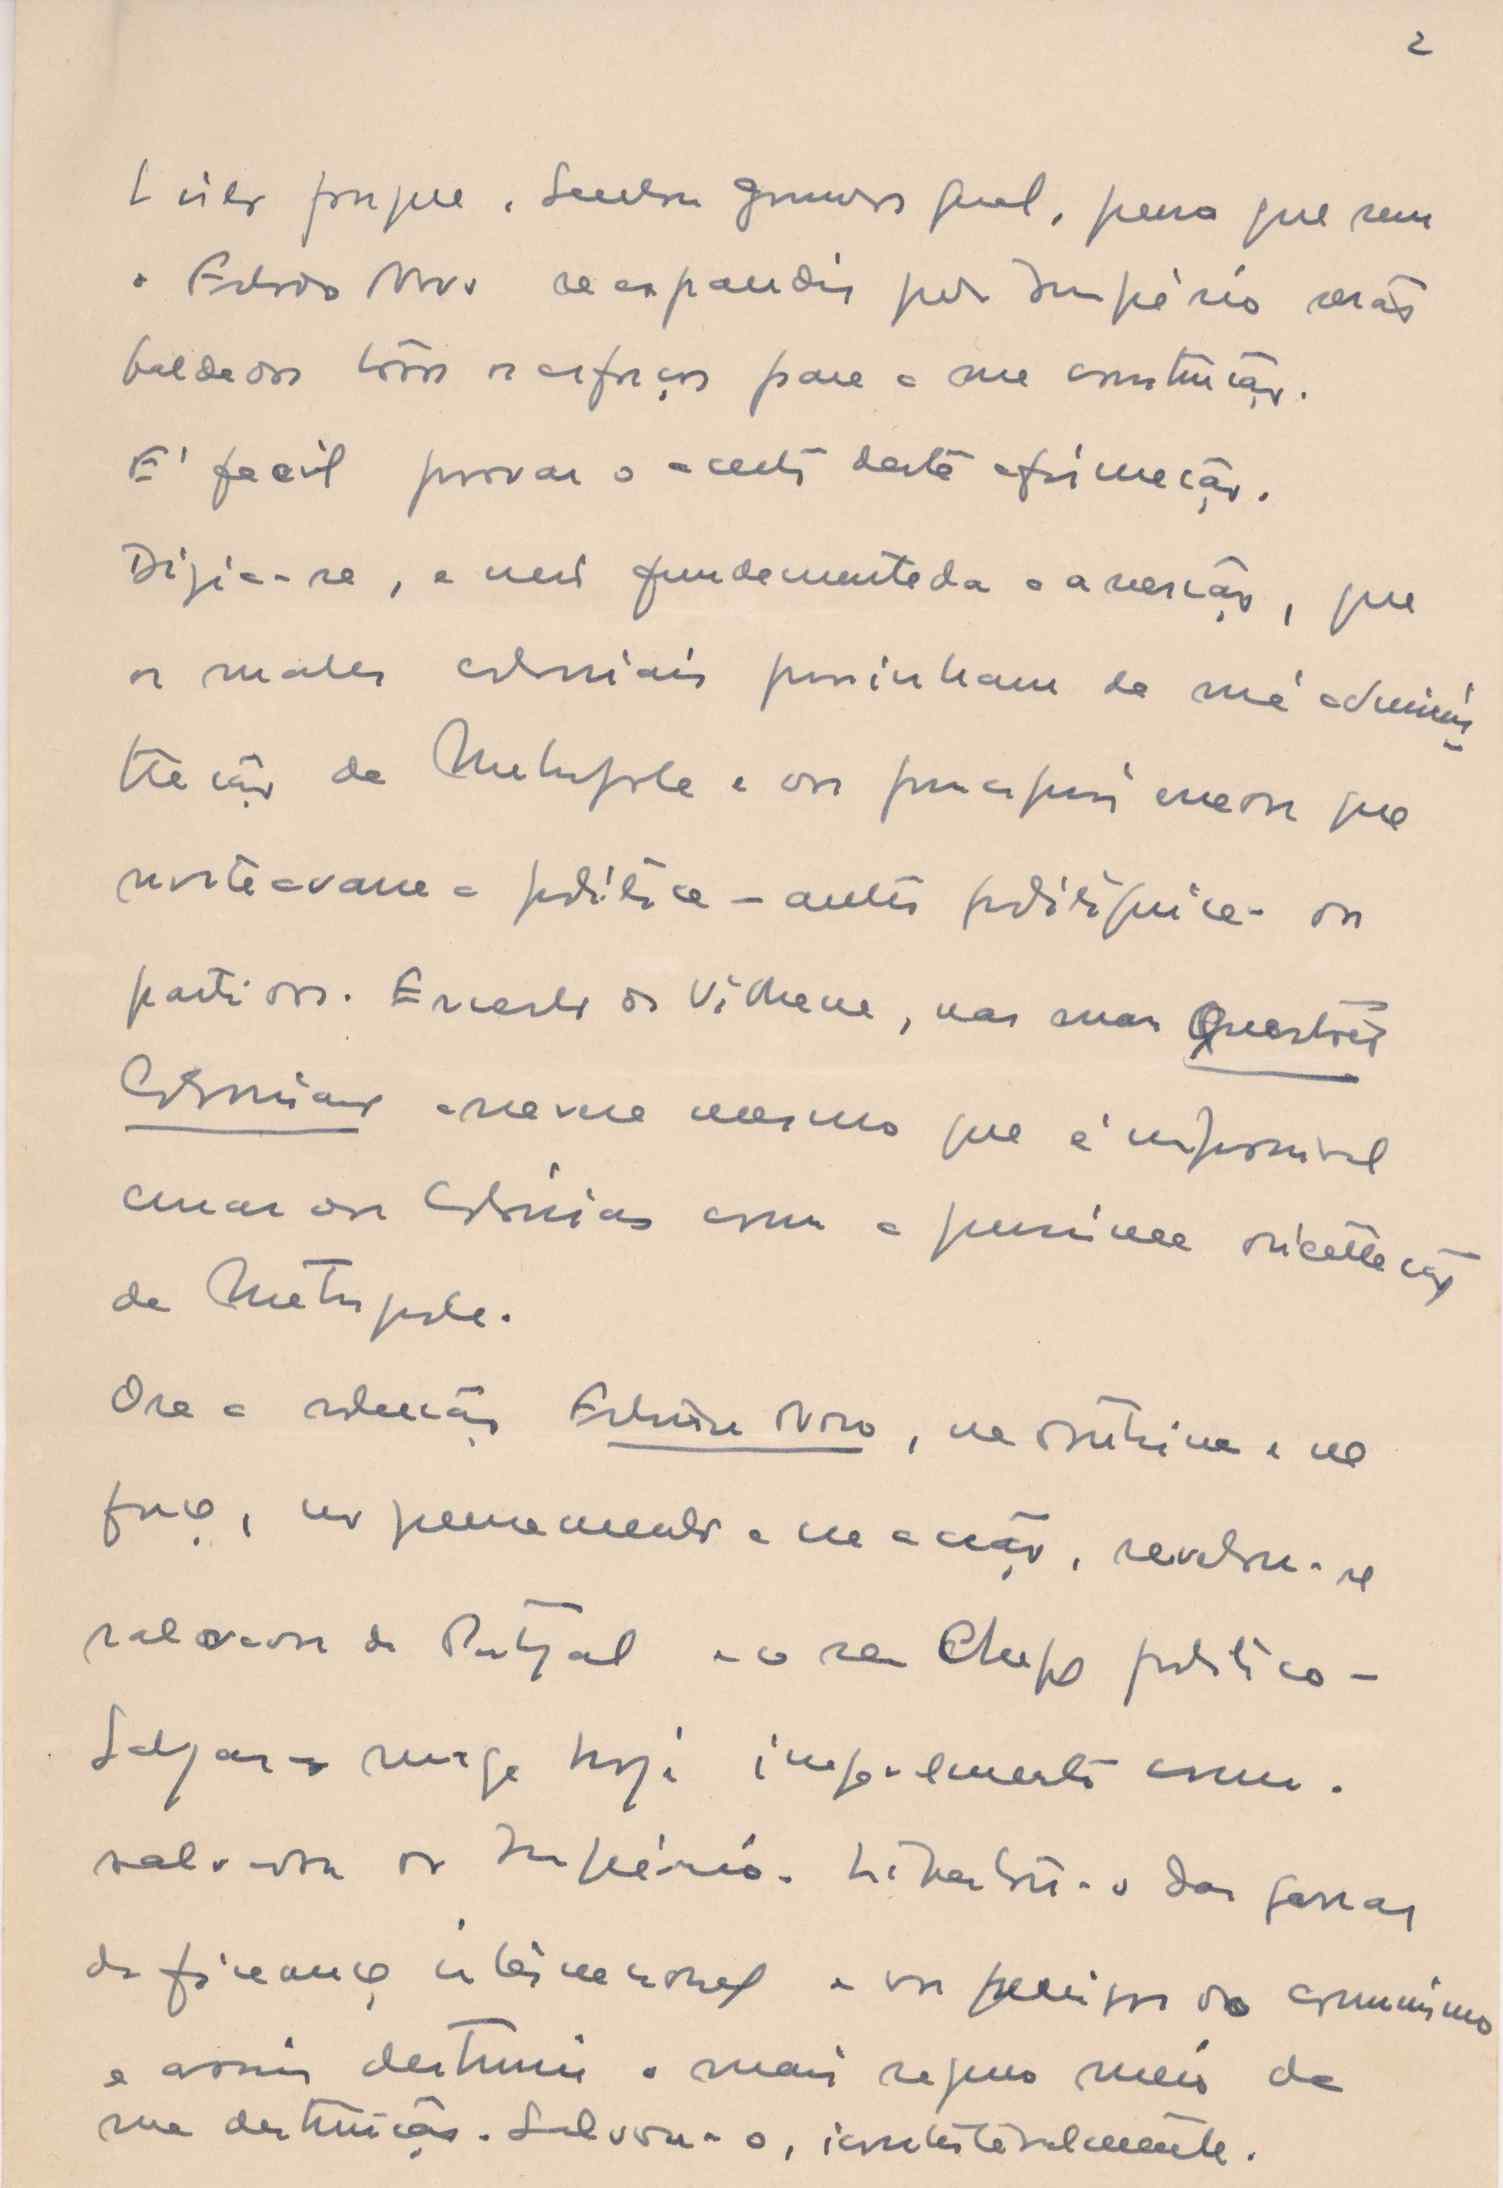 2
porque, Senhor Governador Geral, penso que sem
o Estado Novo se expandir pelo Império serão
baldados todos os esforços para a sua construção.
E' facil provar o acerto desta afirmação.
Dizia-se, e era fundamentada a asserção, que
os males coloniais provinham da má adminis
tração da Metropole e dos principios que
norteavam a política - antes politiquice - dos
partidos. Ernesto de Vilhena, nas suas Questões
Coloniais mesmo que é impossivel
as Colonias com a péssima orientação
da Metropole.
Ora a solução Estado Novo, na doutrina e na
força, no pensamento e na acção, revelou-se
salvadora de Portugal e o seu Chefe politico -
Salazar - surge hoje inegavelmente como o
salvador do Império. Libertou-o das garras
da finança internacional e dos perigos do comunismo
e assim destruiu o mais seguro meio da
sua destruição. Salvou-o, incontestavelmente.